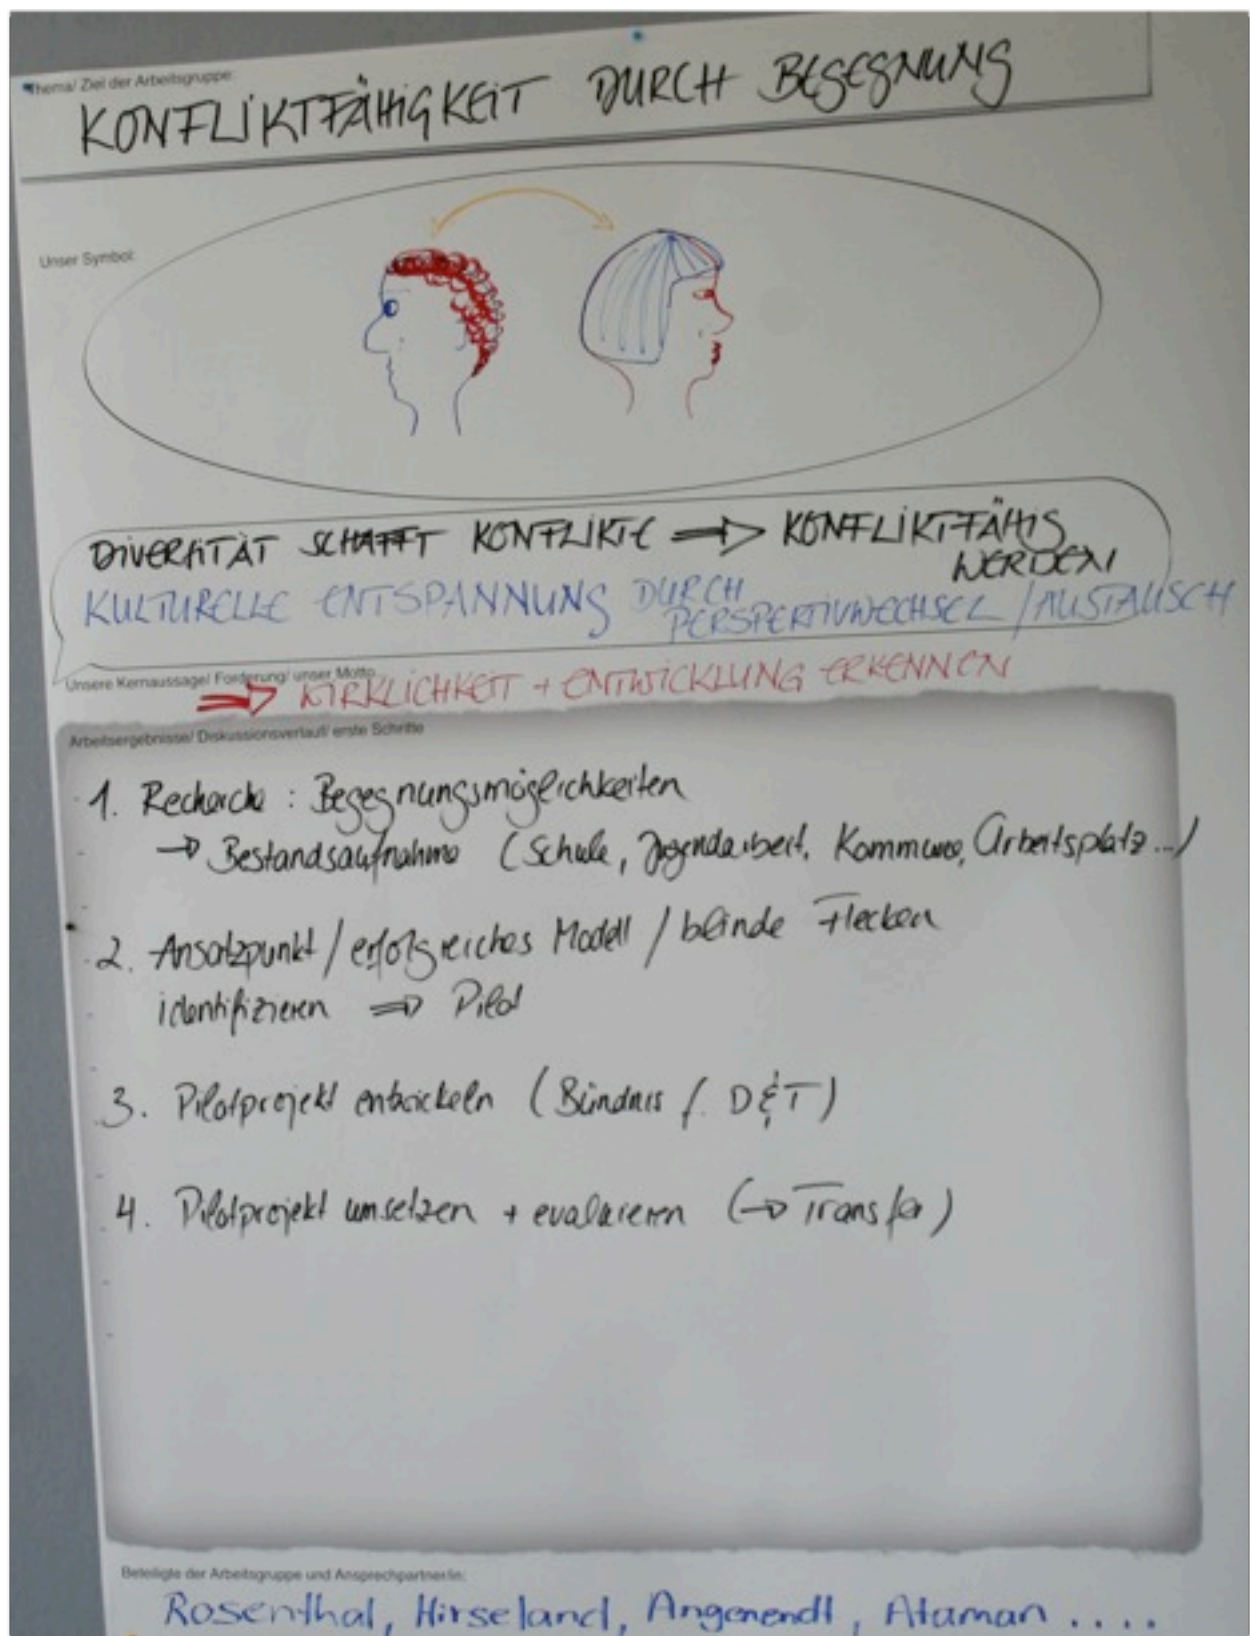 Thema/ Ziel der Arbeitsgruppe:
KONFLIKTFÄHIGKEIT DURCH BEGEGNUNG
Unser Symbol:
DIVERSITÄT SCHAFFT KONFLIKTE ⇒ KONFLIKTFÄHIG
WERDEN
KULTURELLE ENTSPANNUNG DURCH
PERSPEKTIVWECHSEL / AUSTAUSCH
Unsere Kernaussage/ Forderung/ unser Motto
⇒ WIRKLICHKEIT + ENTWICKLUNG ERKENNEN
Arbeitsergebnisse/ Diskussionsverlauf/ erste Schritte
1. Recherche : Begegnungsmöglichkeiten
→ Bestandsaufnahme (Schule, Jugendarbeit, Kommune, Arbeitsplatz...)
2. Ansatzpunkt / erfolgreiches Modell / blinde Flecken
identifizieren ⇒ Pilot
3. Pilotprojekt entwickeln (Bündnis f. D & T)
4. Pilotprojekt umsetzen + evaluieren (→ Transfer)
Beteiligte der Arbeitsgruppe und Ansprechpartner/in:
Rosenthal, Hirseland, Angenendt, Ataman ....